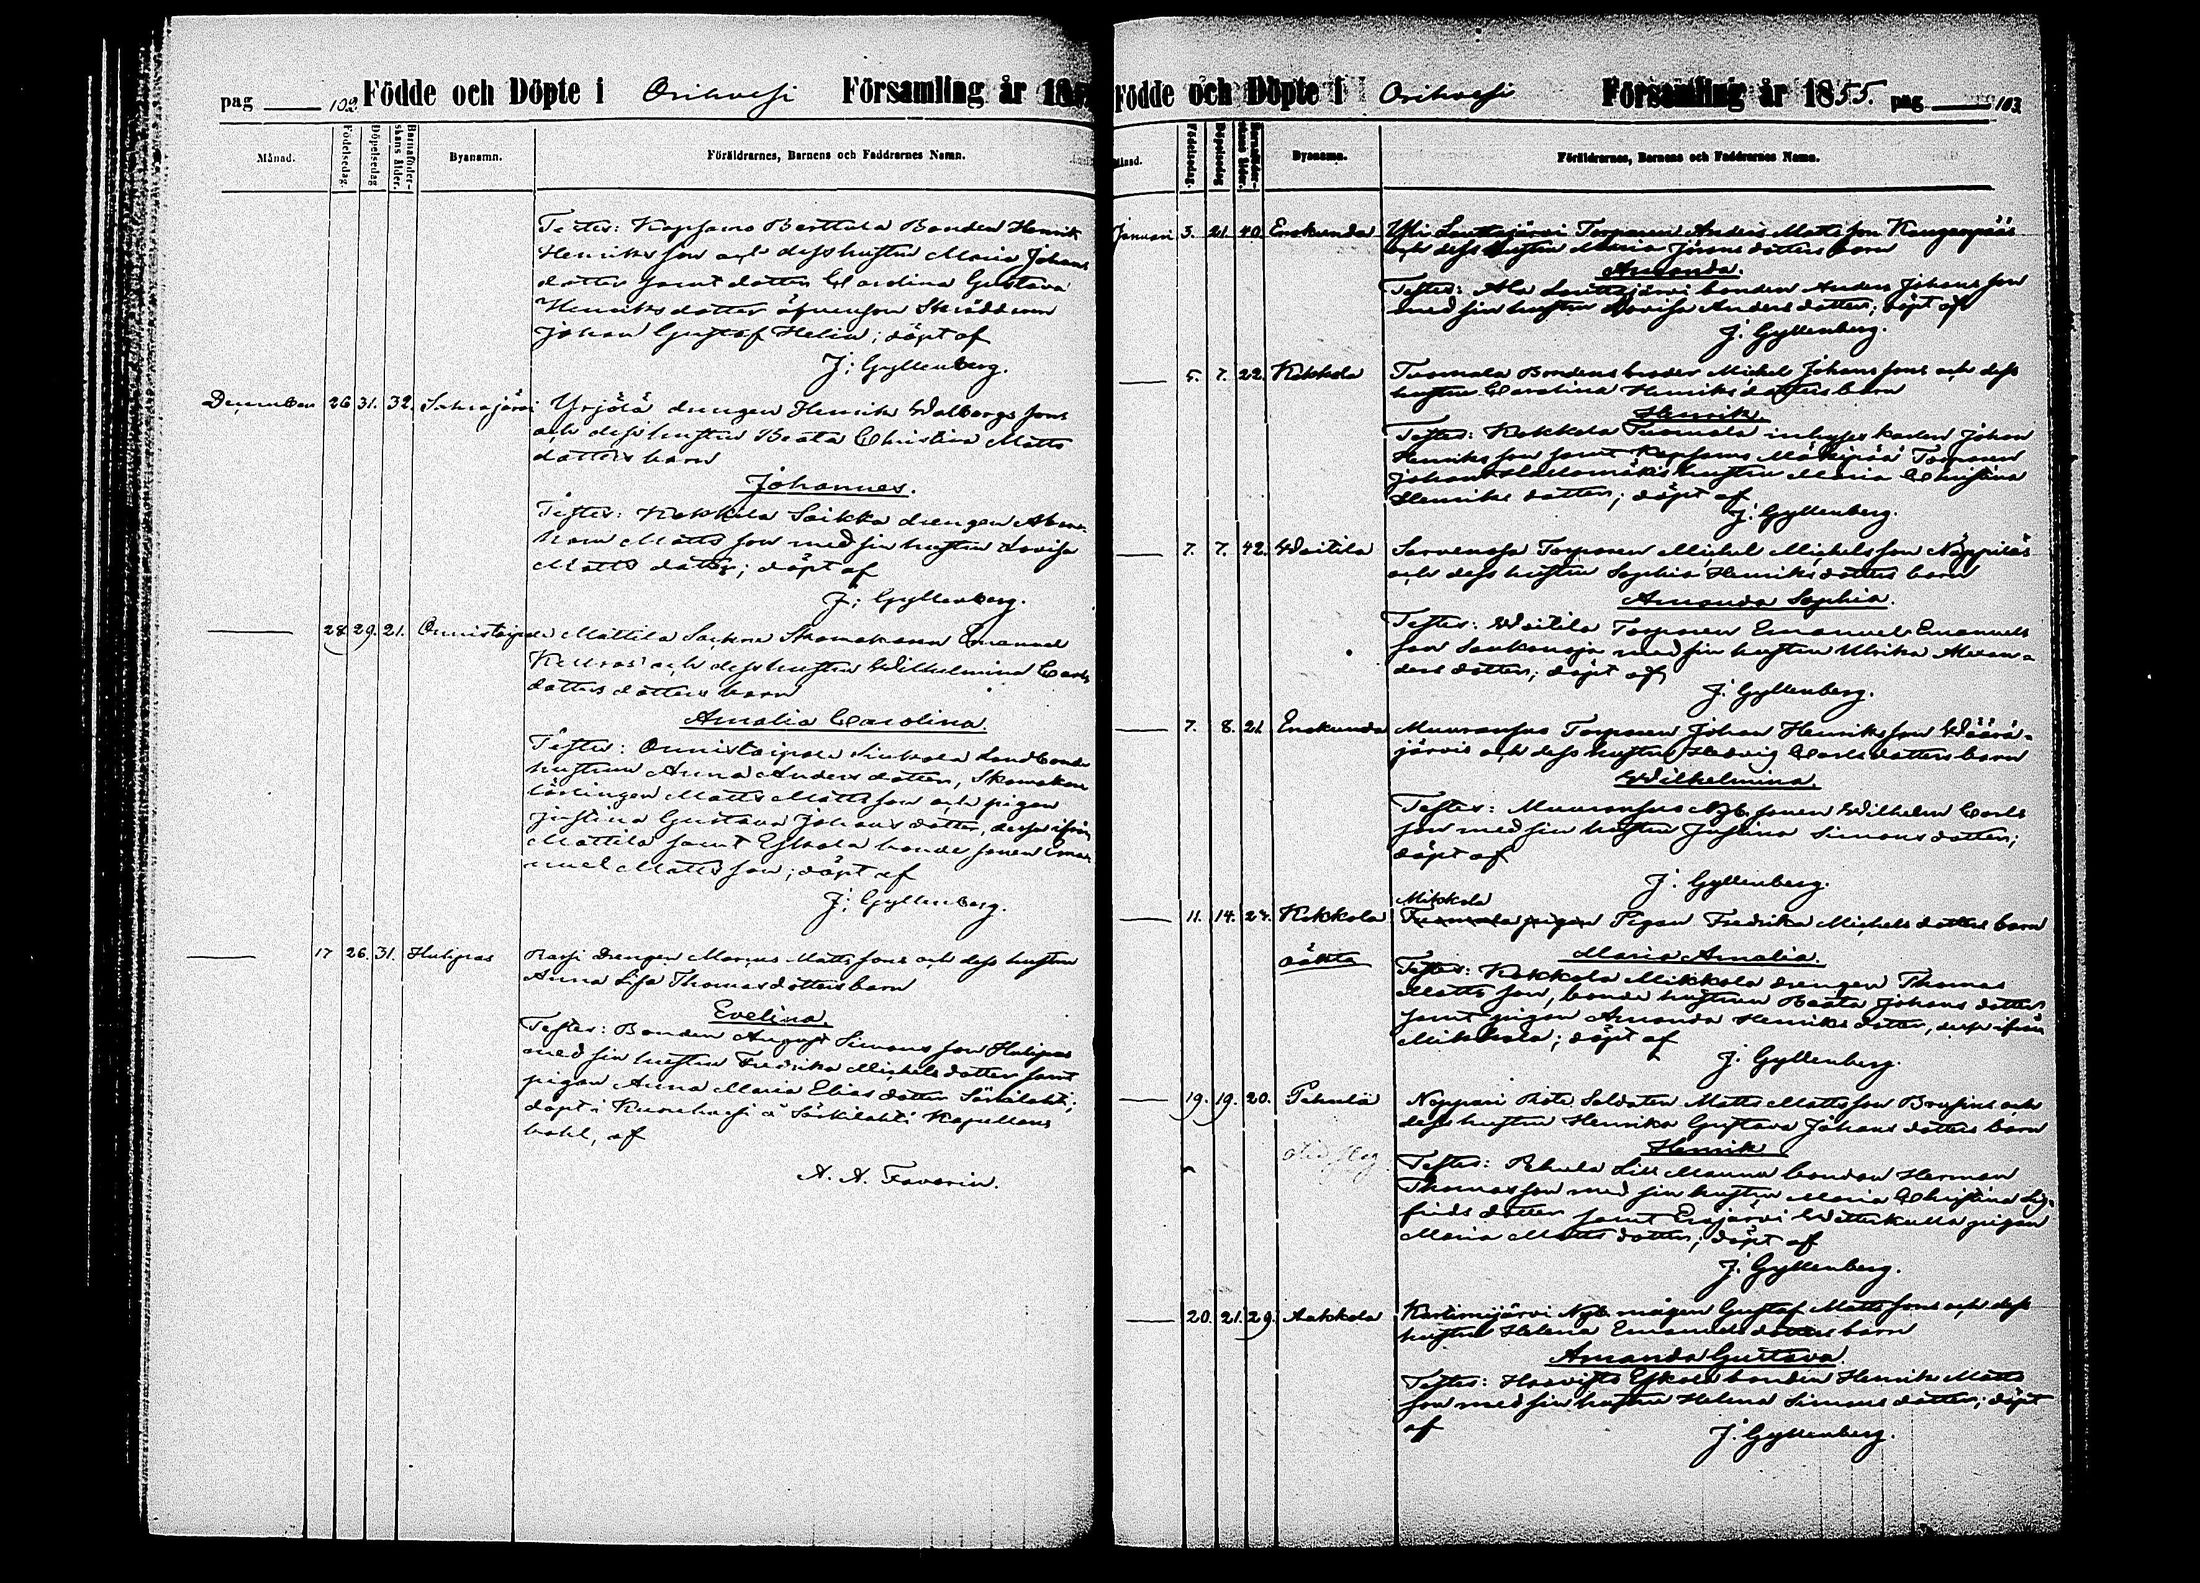 pag 102 Födde och Döpte i Orihvesi Församling år 185
Månad. Födelsedag. Döpelsedag Barnaföder-skans ålder. Byanamn. Föräldrarnes, Barnens och Faddrarnes Namn.
Testes: Kopsamo Berttula Bonden Henrik
Henriksson och dess hustru Maria Johans
dotter samt dotter Carolina Gustava
Henriksdotter äfvensom Skräddaren
Johan Gustaf Helin; döpt af
J: Gyllenberg.
December 26 31. 32. Yrjölä drengen Henrik Walborgs sons
och dess hustru Beata Christina Matts
dotters barn
Johannes.
Testes: Kokkola Saikka drengen Abra-
ham Matts son med sin hustru Lovisa
Matts dotter; döpt af
J: Gyllenberg.
28. 29. 21. Onnistaipale Mattila Skomakaren Emanuel
och dess hustru Wilhelmina Carls
dotters dotters barn
Amalia Carolina.
Testes: Onnistaipale Landbonde
hustrun Anna Anders dotter, Skomakare
lärlingen Matts Mattsson och pigan
Justina Gustava Johans dotter, desse ifrån
Mattila samt Eskola bonde sonen Ema-
nuel Matts son; döpt af
J: Gyllenberg.
17 26. 31. Hulipas drengen Marcus Matts sons och dess hustru
Anna Lisa Thomasdotters barn
Evelina.
Testes: Bonden August Simons son Hulipas
med sin hustru Fredrika Michelsdotter samt
pigan Anna Maria Elias dotter Särkilahti;
döpt i Kuorehvesi å Särkilahti Kapellans
bohl, af
A. A. Favorin.
Födde och Döpte i Orihvesi Församling år 1855. pag 103
Månad. Födelsedag. Döpelsedag Barnaföder-skans ålder. Byanamn. Föräldrarnes, Barnens och Faddrarnes Namn.
Januari 3. 21. 40. Enokunda Yli Lauttajärvi Torparen Anders Matts son Kangaspääs
och dess hustru Maria Jörans dotters barn
Amanda.
Testes: Ala Lauttajärvi bonden Anders Johans son
med sin hustru Lovisa Anders dotter; döpt af
J. Gyllenberg.
5. 7. 22. Kokkola Tuomala Bondens broder Michel Johans sons och dess
hustru Carolina Henriks dotters barn
Henrik.
Testes: Kokkola Tuomala inhyses karlen Johan
Henriks son samt Kopsamo Mäkipää Torparen
Johan hustru Maria Christina
Henriks dotter; döpt af
J. Gyllenberg.
7. 7. 42. Woitila Torparen Michel Michels son
och dess hustru Sophia Henriks dotters barn
Amanda Sophia.
Testes: Woitila Torparen Emanuel Emanuels
son med sin hustru Ulrika Alexan-
ders dotter; döpt af
J. Gyllenberg.
7. 8. 21. Enokunda Torparen Johan Henriks son Wäärä-
järvis och dess hustru Hedvig Carls dotters barn
Wilhelmina.
Testes: Nyb. sonen Wilhelm Carls
son med sin hustru Justina Simons dotter;
döpt af
J. Gyllenberg.
Mikkola
11. 14. 27. Kokkola Tuomala pigan Pigan Fredrika Michels dotters barn
oäkta Maria Amalia.
Testes: Kokkola Mikkola drengen Thomas
Matts son, bonde hustrun Beata Johans dotter
samt pigan Amanda Henriks dotter, desse ifrån
Mikkola; döpt af
J. Gyllenberg.
19. 19. 20. Pehula Noppari Rote Soldaten Matts Matts son Brusins och
dess hustru Henrika Gustava Johans dotters barn
Henrik
Testes: Pehula Lill Mauno bonden Herman
Thomas son med sin hustru Maria Christina Sig-
frids dotter samt Eräjärvi pigan
Maria Matts dotter; döpt af
J. Gyllenberg.
20. 21. 29. Aakkola Nyb. mågen Gustaf Matts sons och dess
hustru Helena Emanuels dotters barn
Amanda Gustava.
Testes: Eskola bonden Henrik Matts
son med sin hustru Helena Simons dotter; döpt
af
J. Gyllenberg.